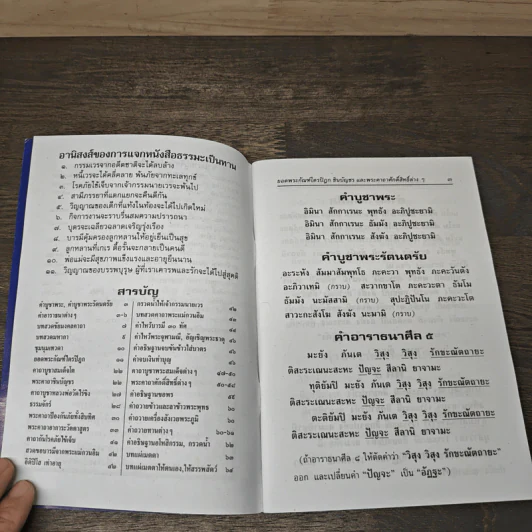 อานิสงส์ของการแจกหนังสือธรรมะเป็นทาน
๑. กรรมเวรจากอดีตชาติจะได้ลบล้าง
๒. หนี้เวรจะได้คลี่คลาย พ้นภัยจากทะเลทุกข์
๓. โรคภัยไข้เจ็บจากเจ้ากรรมนายเวรจะพ้นไป
๔. สามีภรรยาที่แตกแยกจะคืนดีกัน
๕. วิญญาณของเด็กที่แท้งในท้องจะได้ไปเกิดใหม่
๖. กิจการงานจะราบรื่นสมความปรารถนา
๗. บุตรจะเฉลียวฉลาดเจริญรุ่งเรือง
๘. บารมีคุ้มครองลูกหลานให้อยู่เย็นเป็นสุข
๙. ลูกหลานที่เกเร ดื้อรั้นจะกลายเป็นคนดี
๑๐. พ่อแม่จะมีสุขภาพแข็งแรงและอายุยืนนาน
๑๑. วิญญาณของบรรพบุรุษ ผู้ที่เราเคารพและรักจะได้ไปสู่สุคติ
สารบัญ
คำบูชาพระ, คำบูชาพระรัตนตรัย ๓
คำอาราธนาต่างๆ
บทสวดชัยมงคลคาถา ๘
บทสวดมหากา ๙
ชุมนุมเทวดา
ยอดพระกัณฑ์ไตรปิฎก
คาถาบูชาสมเด็จโต
พระคาถาชินบัญชร
คาถาบูชาหลวงพ่อวัดไร่ขิง
ธรรมจักร์
พระคาถาป้องกันภัยทั้งสิบทิศ
พระคาถาอาการะวัตตาสูตร
คาถากันไรเก้าไข้ทั้ง
สวดขอบารมีจากพระแม่กวนอิม
อิติปิโส เท่าอายุ
กรวดน้ำให้เจ้ากรรมนายเวร
บทสวดภาวนาพระแม่กวนอิม
คำไหว้บารมี ๓๐ ทัศ
คำไหว้พระจุฬามณี, อัญเชิญพระธาตุ
คำอธิษฐานจบขันข้าวใส่บาตร
คำจบเงินทำบุญ
คาถาบูชาพระสมเด็จต่างๆ
พระคาถาศักดิ์สิทธิ์ต่างๆ
คำอธิษฐานขอพร
คำถวายข้าวและลาข้าวพระพุทธ ๖๐
คำถวายเครื่องสังเวยพระภูมิ
คำถวายทานต่างๆ
คำอธิษฐานอโหสิกรรม, กรวดน้ำ
บทแผ่เมตตา
บทแผ่เมตตาให้ตนเอง, ให้สรรพสัตว์ ๖๔
ยอดพระกัณฑ์ไตรปิฎก ชินบัญชร และพระคาถาศักดิ์สิทธิ์ต่าง ๆ ๓
คำบูชาพระ
อิมินา สักกาเรนะ พุทธัง อะภิปูชะยามิ
อิมินา สักกาเรนะ ธัมมัง อะภิปูชะยามิ
อิมินา สักกาเรนะ สังฆัง อะภิปูชะยามิ
คำบูชาพระรัตนตรัย
อะระหัง สัมมาสัมพุทโธ ภะคะวา พุทธัง ภะคะวันตัง
อะภิวาเทมิ (กราบ) สะวากขาโต ภะคะวะตา ธัมโม
ธัมมัง นะมัสสามิ (กราบ) สุปะฏิปันโน ภะคะวะโต
สาวะกะสังโฆ สังฆัง นะมามิ (กราบ)
คำอาราธนาศีล ๕
มะยัง ภันเต วิสุง วิสุง รักขะณัตถายะ
ติสะระเณนะสะหะ ปัญจะ สีลานิ ยาจามะ
ทุติยัมปิ มะยัง ภันเต วิสุง วิสุง รักขะณัตถายะ
ติสะระเณนะสะหะ ปัญจะ สีลานิ ยาจามะ
ตะติยัมปิ มะยัง ภันเต วิสุง วิสุง รักขะณัตถายะ
ติสะระเณนะสะหะ ปัญจะ สีลานิ ยาจามะ
(ถ้าอาราธนาศีล ๘ ให้ตัดคำว่า "วิสุง วิสุง รักขะณัตถายะ"
ออก และเปลี่ยนคำว่า "ปัญจะ" เป็น "อัฏฐะ")